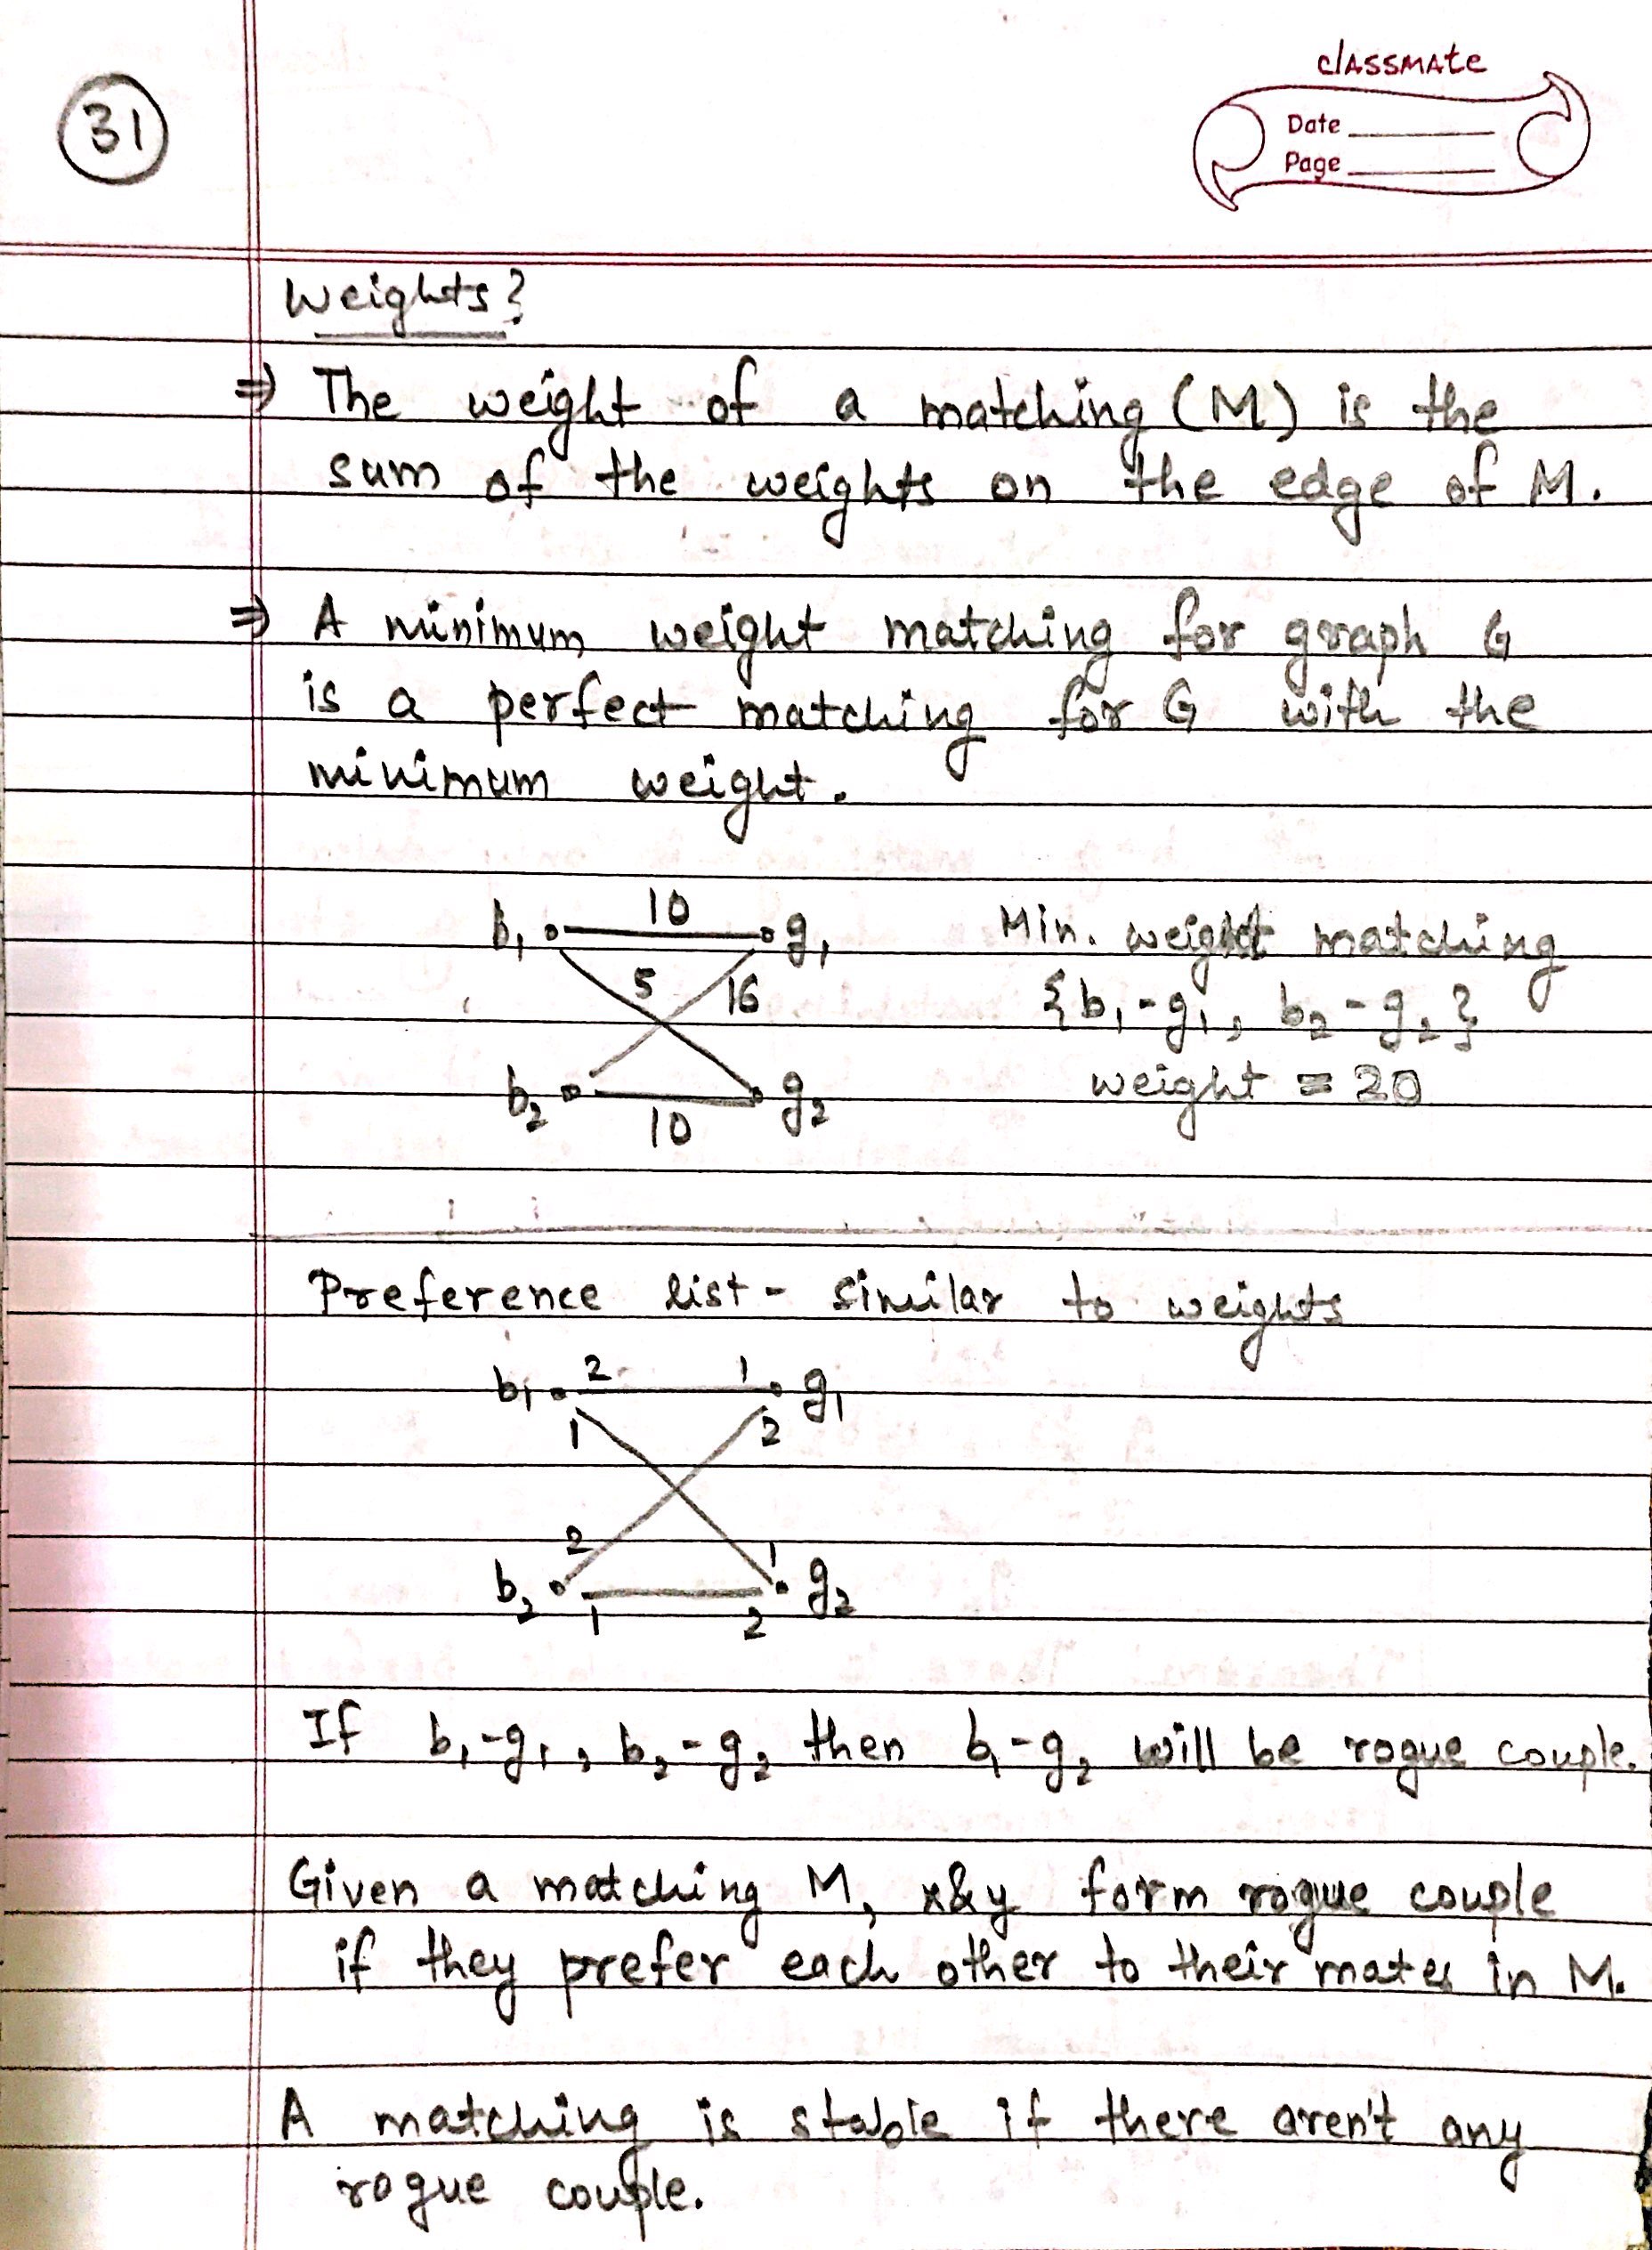 31
classmate
Date
Page
Weights?
⇒ The weight of a matching (M) is the
sum of the weights on the edge of M.
⇒ A minimum weight matching for graph G
is a perfect matching for G with the
minimum weight.
b₁ 10 g₁
5 16
b₂ 10 g₂
Min. weight matching
{b₁-g₁, b₂-g₂}
weight = 20
Preference list - similar to weights
b₁ 2 1 g₁
1 2
2 1
b₂ g₂
1 2
If b₁-g₁, b₂-g₂ then b₁-g₂ will be rogue couple.
Given a matching M, x&y form rogue couple
if they prefer each other to their mates in M.
A matching is stable if there aren't any
rogue couple.